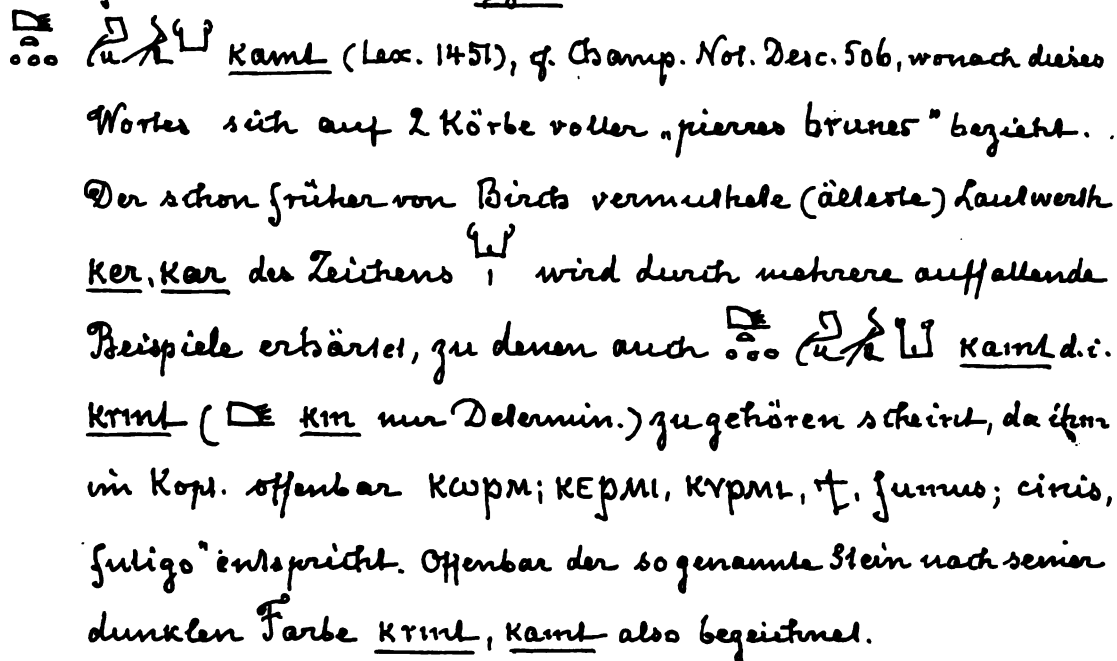 kamt (Lex. 1451), cf. Champ. Not. Desc. 506, wonach dieses
Wortes sich auf 2 Körbe voller „pierres brunes" bezieht.
Der schon früher von Birch vermuthete (älteste) Lautwerth
ker, kar des Zeichens wird durch mehrere auffallende
Beispiele erhärtet, zu denen auch kamt d.i.
krmt ( km nur Determin.) zu gehören scheint, da ihm
im Kopt. offenbar ⲕⲱⲣⲙ; ⲕⲉⲣⲙⲓ, ⲕⲩⲣⲙⲓ, fumus; cinis,
fuligo" entspricht. Offenbar der so genannte Stein nach seiner
dunklen Farbe krmt, kamt also bezeichnet.